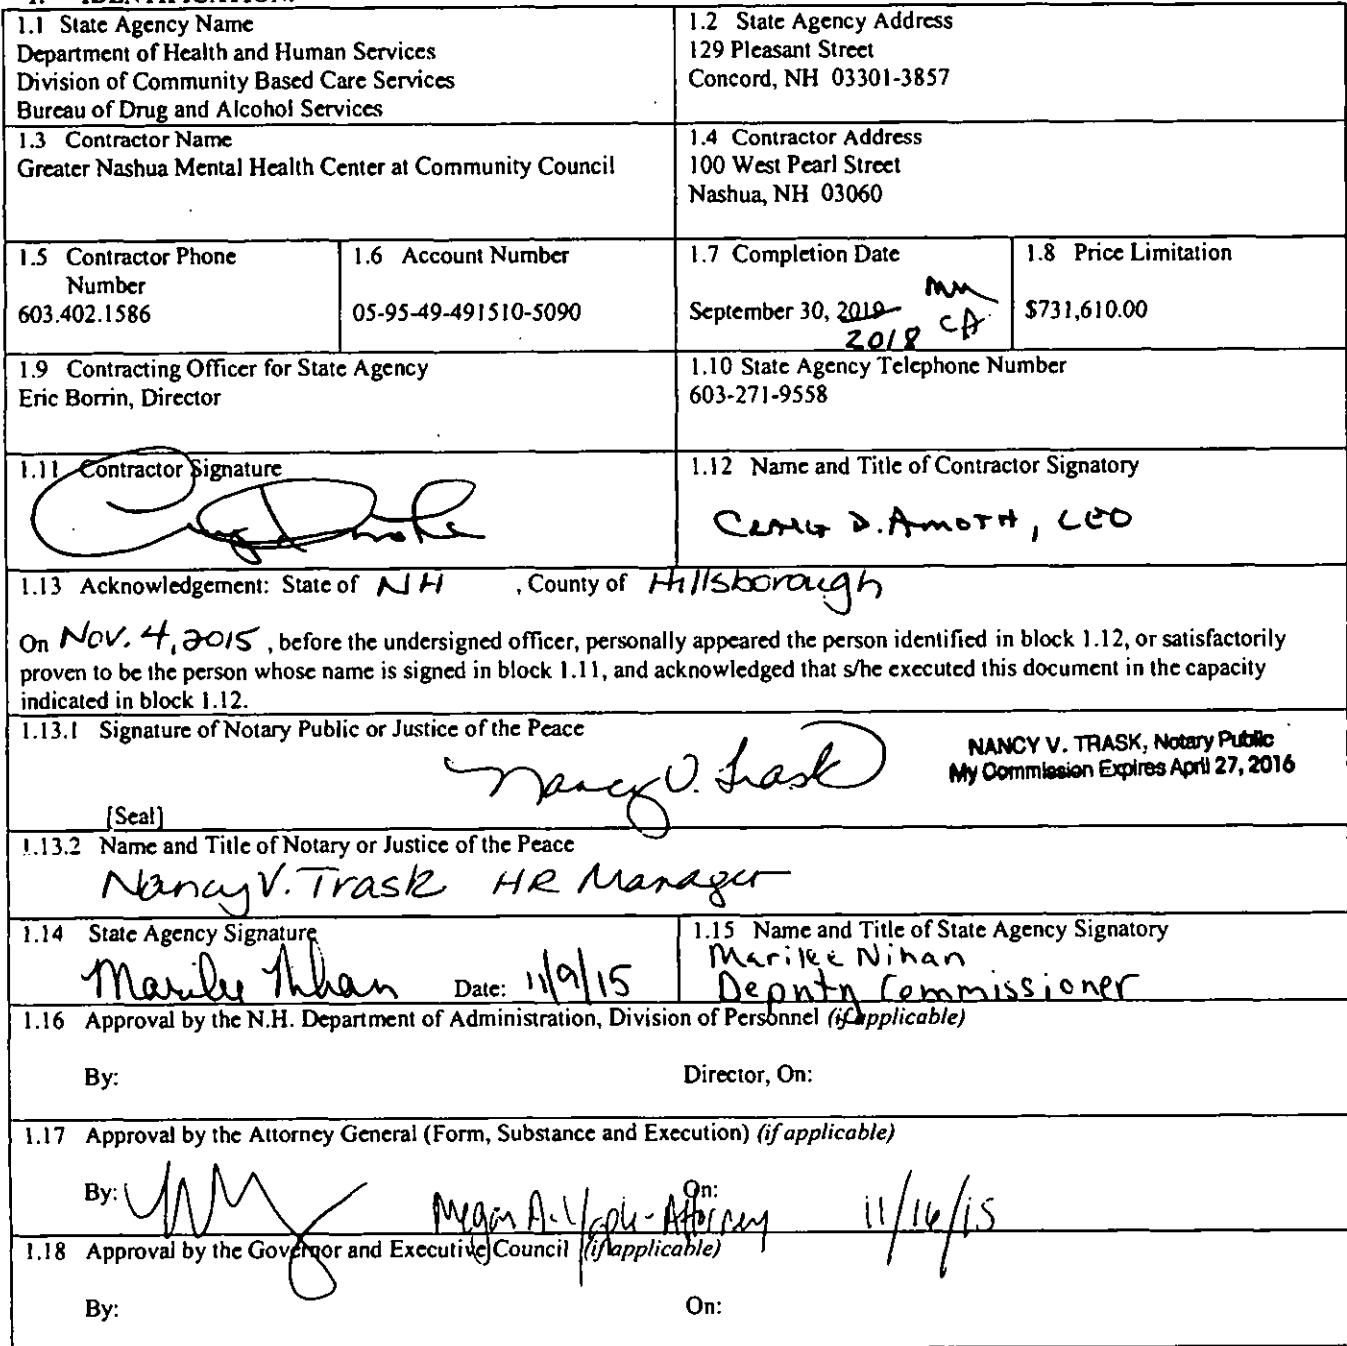 1.1 State Agency Name
Department of Health and Human Services
Division of Community Based Care Services
Bureau of Drug and Alcohol Services
1.2 State Agency Address
129 Pleasant Street
Concord, NH 03301-3857
1.3 Contractor Name
Greater Nashua Mental Health Center at Community Council
1.4 Contractor Address
100 West Pearl Street
Nashua, NH 03060
1.5 Contractor Phone
Number
603.402.1586
1.6 Account Number
05-95-49-491510-5090
1.7 Completion Date
September 30, 2019
2018 CA
1.8 Price Limitation
$731,610.00
1.9 Contracting Officer for State Agency
Eric Borrin, Director
1.10 State Agency Telephone Number
603-271-9558
1.11 Contractor Signature
1.12 Name and Title of Contractor Signatory
Craig D. Amoth, CEO
1.13 Acknowledgement: State of NH , County of Hillsborough
On Nov. 4, 2015 , before the undersigned officer, personally appeared the person identified in block 1.12, or satisfactorily
proven to be the person whose name is signed in block 1.11, and acknowledged that s/he executed this document in the capacity
indicated in block 1.12.
1.13.1 Signature of Notary Public or Justice of the Peace
Nancy V. Trask
NANCY V. TRASK, Notary Public
My Commission Expires April 27, 2016
[Seal]
1.13.2 Name and Title of Notary or Justice of the Peace
Nancy V. Trask HR Manager
1.14 State Agency Signature
Marilee Nihan Date: 11/9/15
1.15 Name and Title of State Agency Signatory
Marilee Nihan
Deputy Commissioner
1.16 Approval by the N.H. Department of Administration, Division of Personnel (if applicable)
By: Director, On:
1.17 Approval by the Attorney General (Form, Substance and Execution) (if applicable)
By: Megan A. - Attorney On: 11/16/15
1.18 Approval by the Governor and Executive Council (if applicable)
By: On: